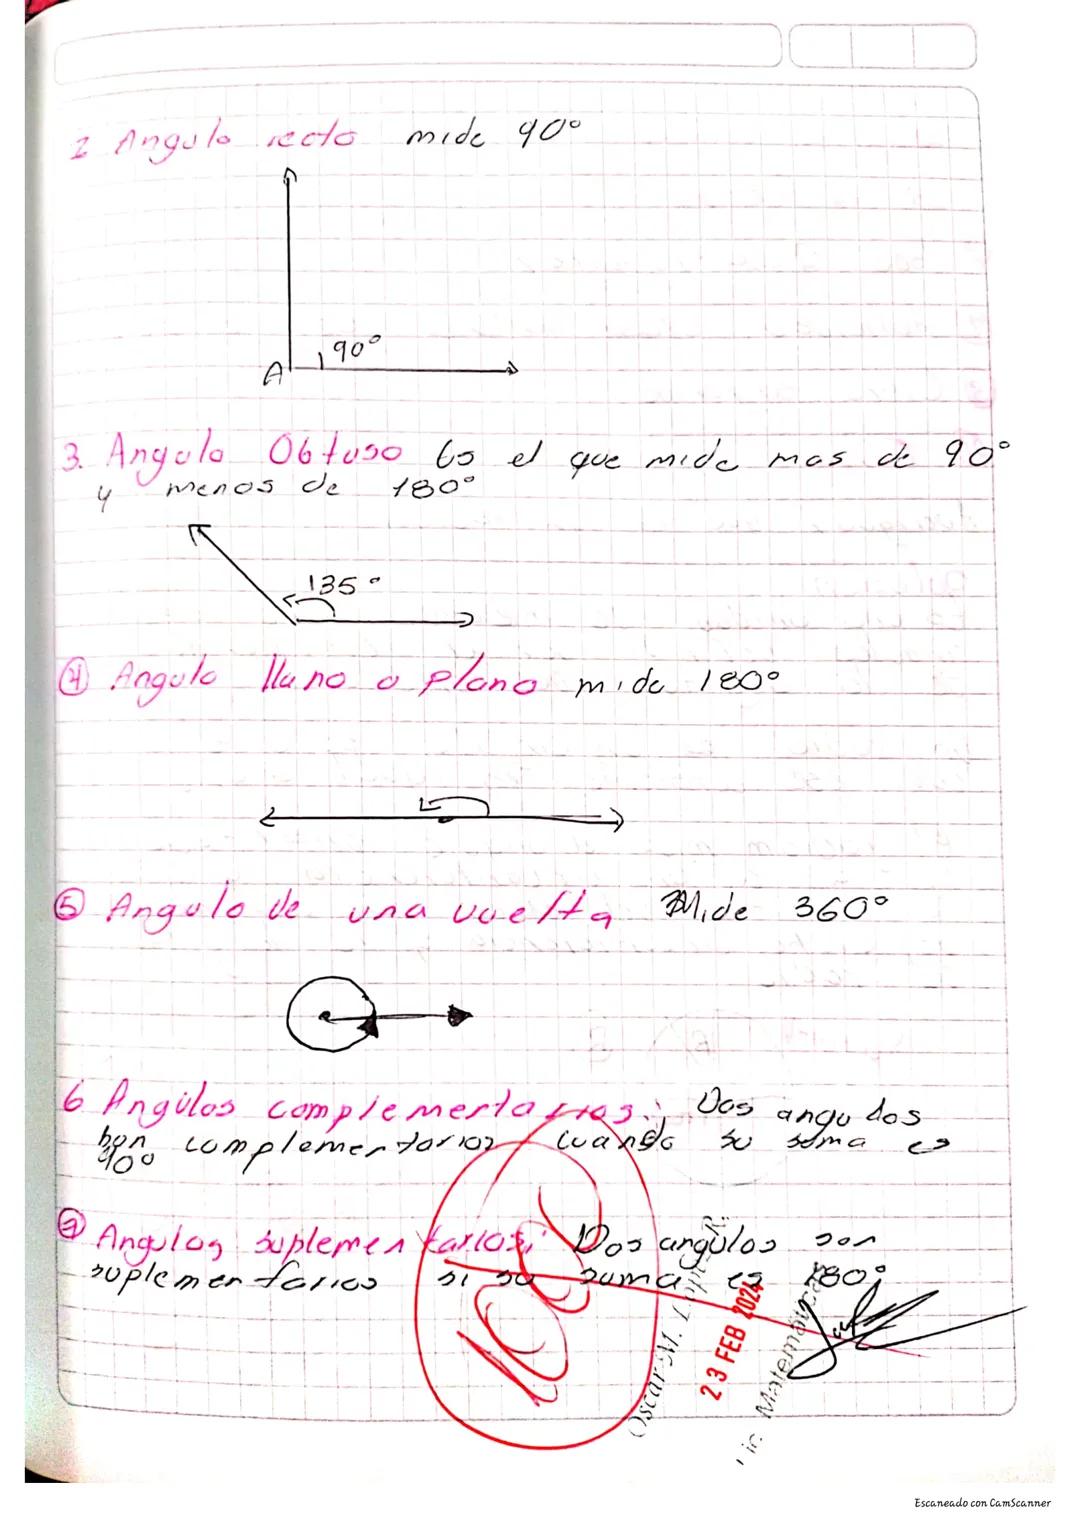 2 Angulo recto mide 90°
90°
A
3. Angulo Obtuso Es el que mide mas de 90°
y menos de 180°
135°
4 Angulo llano o plano mide 180°
5 Angulo de una vuelta Mide 360°
6 Angulos complementarios: Dos angulos
son complementarios cuando su suma es
90°
7 Angulos suplementarios; Dos angulos son
suplementarios si su suma es 180°
100
Oscar M.
23 FEB 2024
Lic. Matemáticas
Escaneado con CamScanner